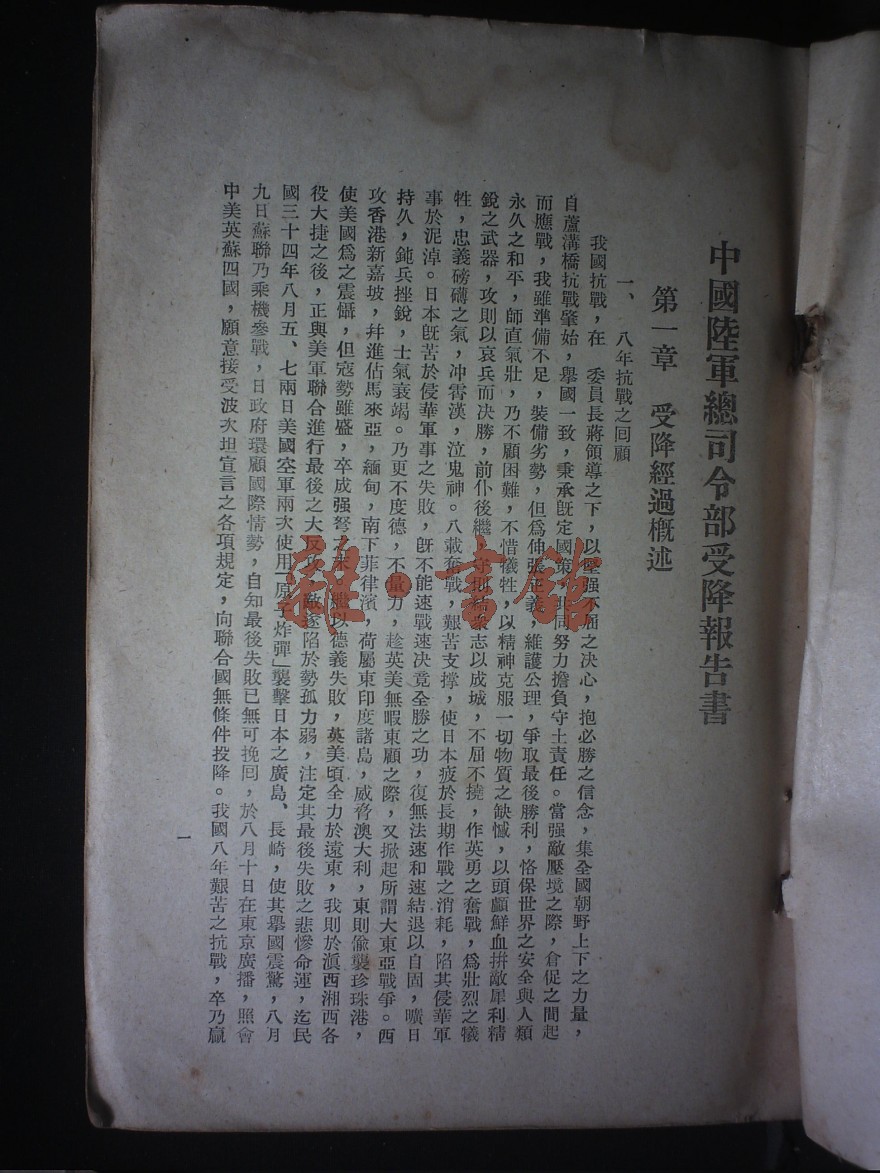 中國陸軍總司令部受降報告書
第一章 受降經過概述
一、 八年抗戰之回顧
我國抗戰，在 委員長蔣領導之下，以堅强不屈之決心，抱必勝之信念，集全國朝野上下之力量，
自蘆溝橋抗戰肇始，舉國一致，秉承旣定國策，共同努力擔負守土責任。當强敵壓境之際，倉促之間起
而應戰，我雖準備不足，裝備劣勢，但爲伸張正義，維護公理，爭取最後勝利，恪保世界之安全與人類
永久之和平，師直氣壯，乃不顧困難，不惜犧牲，以精神克服一切物質之缺憾，以頭顱鮮血拚敵犀利精
銳之武器，攻則以哀兵而決勝，前仆後繼，守則結衆志以成城，不屈不撓，作英勇之奮戰，爲壯烈之犧
牲，忠義磅礴之氣，冲霄漢，泣鬼神。八載奮戰，艱苦支撐，使日本疲於長期作戰之消耗，陷其侵華軍
事於泥淖。日本旣苦於侵華軍事之失敗，旣不能速戰速決竟全勝之功，復無法速和速結退以自固，曠日
持久，鈍兵挫銳，士氣衰竭。乃更不度德，不量力，趁英美無暇東顧之際，又掀起所謂大東亞戰爭。西
攻香港新嘉坡，幷進佔馬來亞，緬甸，南下菲律濱，荷屬東印度諸島，威脅澳大利，東則偸襲珍珠港，
使美國爲之震懾，但寇勢雖盛，卒成强弩之末，繼以德義失敗，英美頃全力於遠東，我則於滇西湘西各
役大捷之後，正與美軍聯合進行最後之大反攻，敵逐陷於勢孤力弱，注定其最後失敗之悲慘命運，迄民
國三十四年八月五、七兩日美國空軍兩次使用「原子炸彈」襲擊日本之廣島、長崎，使其舉國震驚，八月
九日蘇聯乃乘機參戰，日政府環顧國際情勢，自知最後失敗已無可挽回，於八月十日在東京廣播，照會
中美英蘇四國，願意接受波次坦宣言之各項規定，向聯合國無條件投降。我國八年艱苦之抗戰，卒乃贏
一
雜·書館